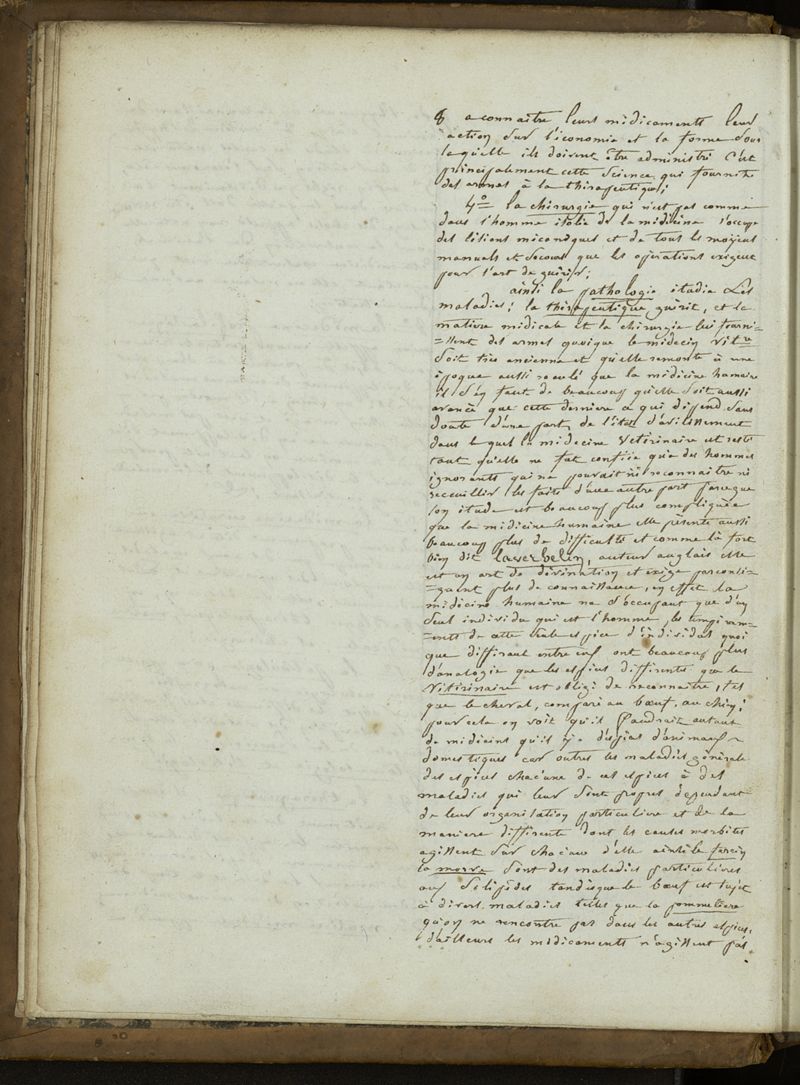 8 a connaitre leurs médicaments leur
action sur l'économie et la forme sous
laquelle ils doivent être administré C'est
principalement cette science qui fournit
des armes à la thérapeutique;
4º la chirurgie qui n'est pas comme
dans l'homme isolée de la médicine s'occupe
des lésions mécaniques et de tous les moyens
manuels et secours que les opérations exigent
pour l'art de guérir;
ainsi la pathologie étudie Les
maladies; la thérapeutique guérit, et la
matière médicale et la chirurgie lui fourni-
=ssent des armes quoique le médecin vétre
soit très ancienne et qu'elle remonte à une
époque aussi reculé que la médicine humaine
il s'en faut de beaucoup qu'elle soit aussi
avancé que cette dernière ce qui dépend sans
doute d'une part, de l'état d'avilissement
dans lequel la médecine vétérinaire est resté
tant qu'elle ne fut confiée qu'a des hommes
ignorants qui ne pouvait ni reconnaitre ni
recueillir les faits d'une autre part parceque
son étude est beaucoup plus compliquée
que la médicine humaine elle présente aussi
beaucoup plus de difficulté et comme là fort
bien dit , auteur anglais elle
est un art de divination et exige parconsé-
=quent plus de connaissance, en effet la
médicine humaine ne s'occupant que d'un
seul individu qui est l'homme, les tempéram-
=ents de cette seule espèce d'individus quoi
que différant entre eux ont beaucoup plus
d'analogie que les espèces différentes que le
Vétérinaire est obligé de reconnaitre, tel
que le cheval, comparé au bœuf, au chien;
pour cela on voit qu'il faudrait autant
de médicins qu'il y a d'espèces d'animaux
domestiques car outres les maladies générale
des espèces chacune de ces espèces à des
maladies qui leur sont propres dépendant
de leur organisation particulière et de la
manière différente dont les causes morbites
agissent sur chacune d'elle ainsi le farcin
la morve sont des maladies particulières
aux solipèdes tandisque le bœuf est sujet
à divers maladies telles que la pommelière
qu'on ne rencontre pas dans les autres espèces,
d'ailleurs les médicaments n'agissent pas